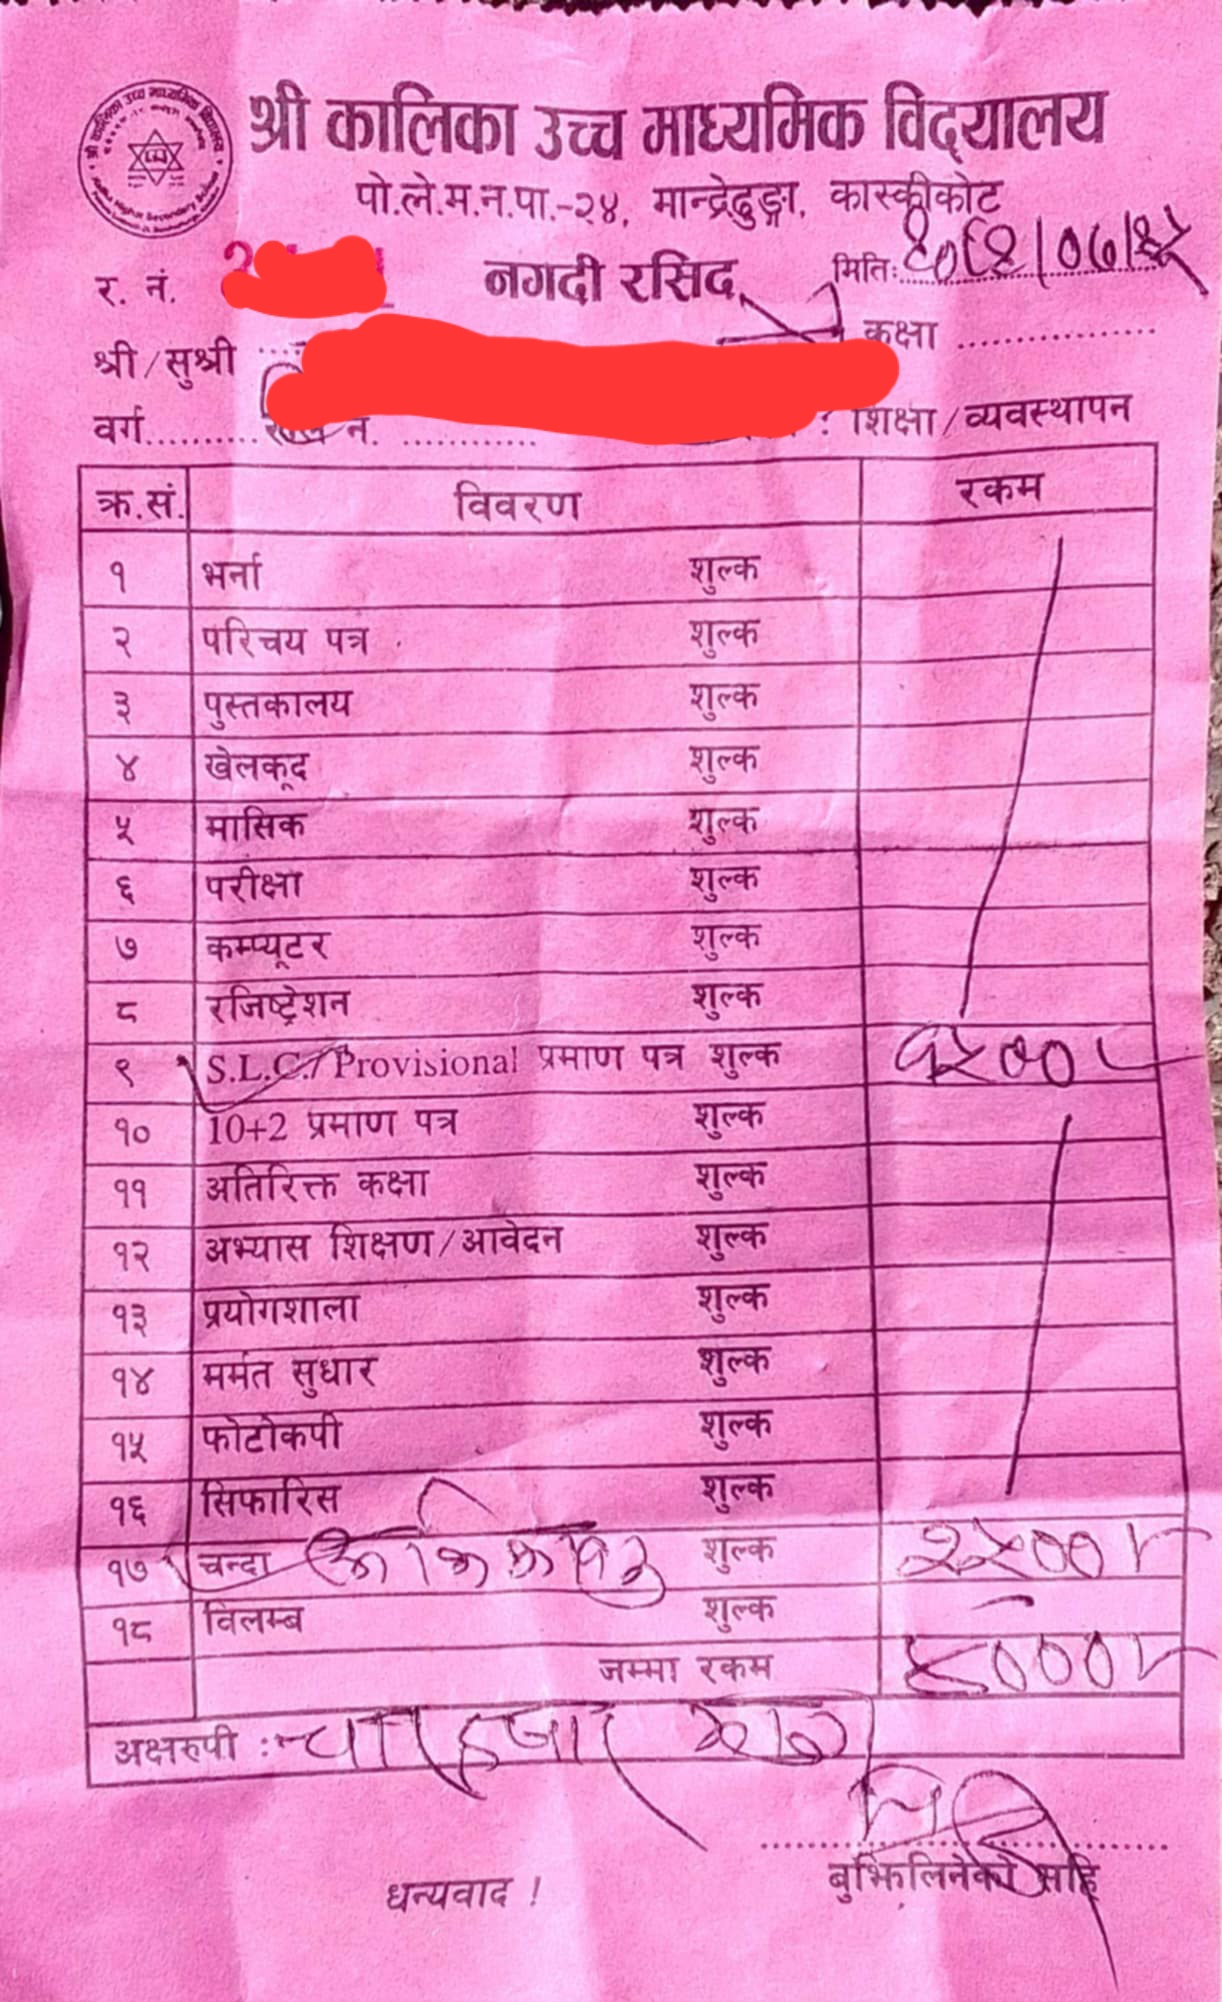 श्री कालिका उच्च माध्यमिक विद्यालय
पो.ले.म.न.पा.-२४, मान्द्रेढुङ्गा, कास्कीकोट
र. नं.
नगदी रसिद
मिति:
श्री/सुश्री
कक्षा
वर्ग.......... रोल नं. ............ : शिक्षा/व्यवस्थापन
क्र.सं. विवरण रकम
१ भर्ना शुल्क
२ परिचय पत्र शुल्क
३ पुस्तकालय शुल्क
४ खेलकूद शुल्क
५ मासिक शुल्क
६ परीक्षा शुल्क
७ कम्प्यूटर शुल्क
८ रजिष्ट्रेशन शुल्क
९ S.L.C./Provisional प्रमाण पत्र शुल्क १५००।-
१० 10+2 प्रमाण पत्र शुल्क
११ अतिरिक्त कक्षा शुल्क
१२ अभ्यास शिक्षण/आवेदन शुल्क
१३ प्रयोगशाला शुल्क
१४ मर्मत सुधार शुल्क
१५ फोटोकपी शुल्क
१६ सिफारिस शुल्क
१७ चन्दा शुल्क २५००।-
१८ विलम्ब शुल्क -
जम्मा रकम ४०००।-
अक्षरुपी : चार हजार मात्र
बुझिलिनेको सहि
धन्यवाद !